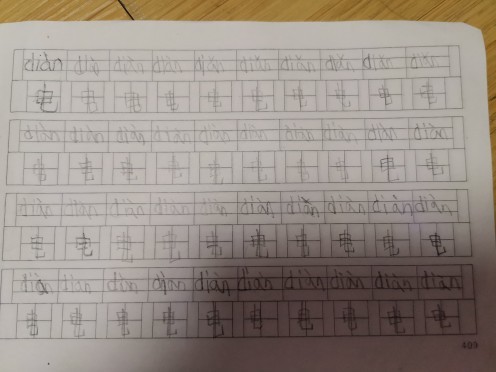 diàn diàn diàn diàn diàn diàn diàn diàn diàn diàn
电 电 电 电 电 电 电 电 电 电
diàn diàn diàn diàn diàn diàn diàn diàn diàn diàn
电 电 电 电 电 电 电 电 电 电
diàn diàn diàn diàn diàn diàn diàn diàn diàn diàn
电 电 电 电 电 电 电 电 电 电
diàn diàn diàn diàn diàn diàn diàn diàn diàn diàn
电 电 电 电 电 电 电 电 电 电
409